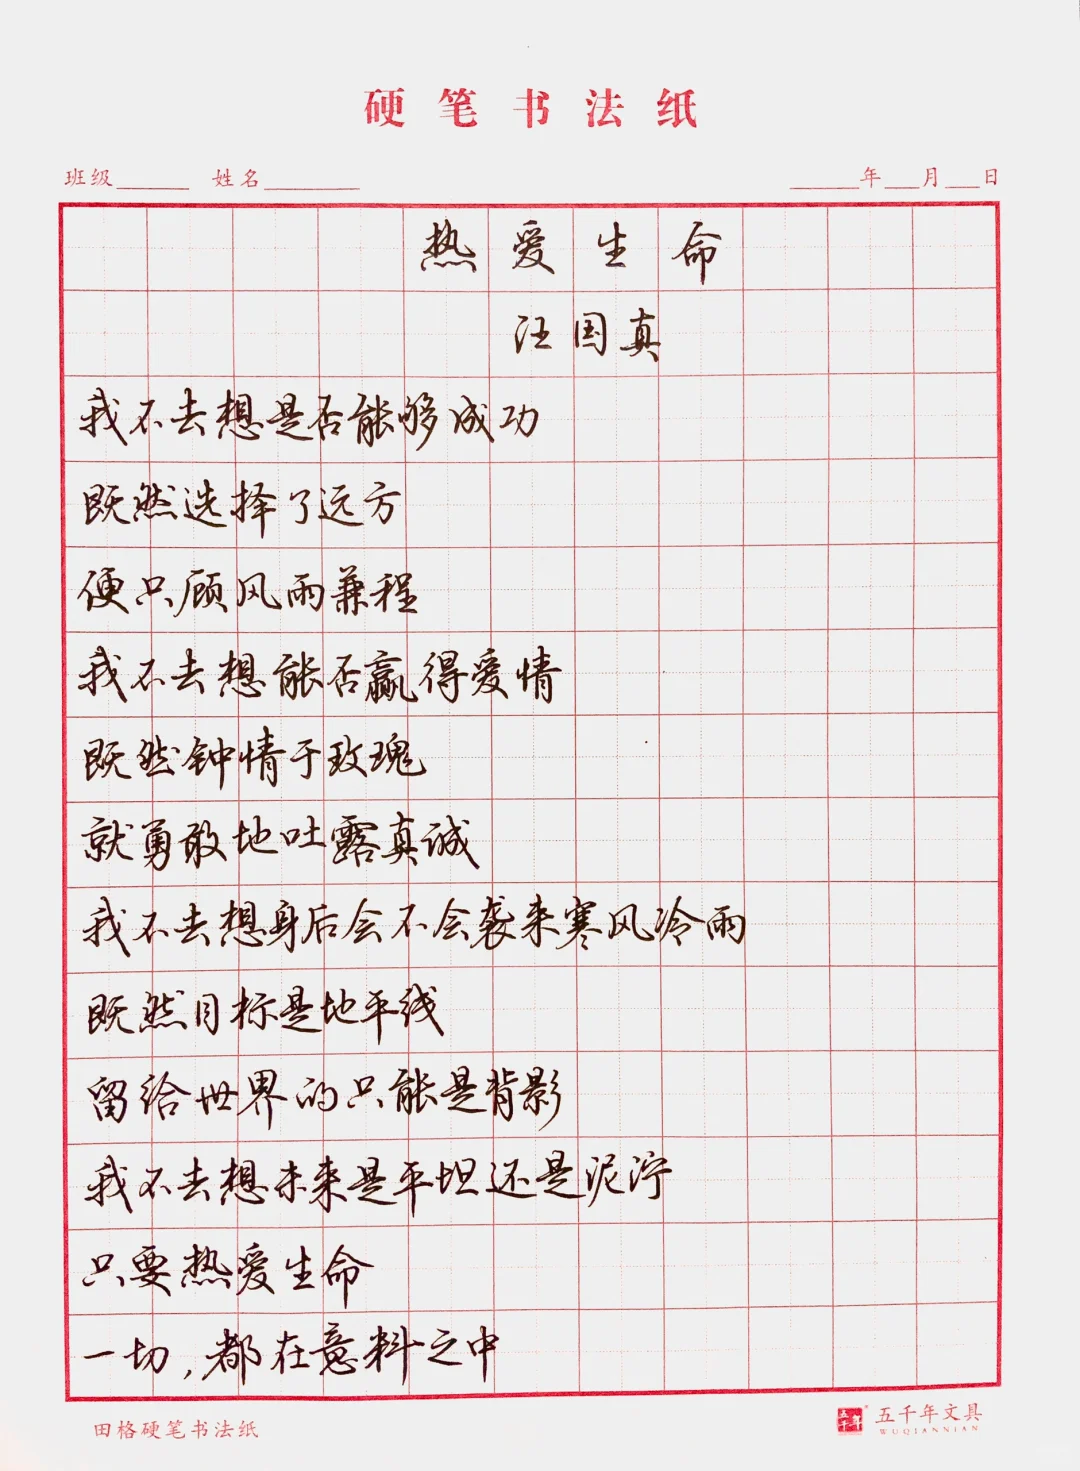 硬笔书法纸
班级______ 姓名________ ______年___月___日
热爱生命
汪国真
我不去想是否能够成功
既然选择了远方
便只顾风雨兼程
我不去想能否赢得爱情
既然钟情于玫瑰
就勇敢地吐露真诚
我不去想身后会不会袭来寒风冷雨
既然目标是地平线
留给世界的只能是背影
我不去想未来是平坦还是泥泞
只要热爱生命
一切,都在意料之中
田格硬笔书法纸
五千年 五千年文具
WUQIANNIAN